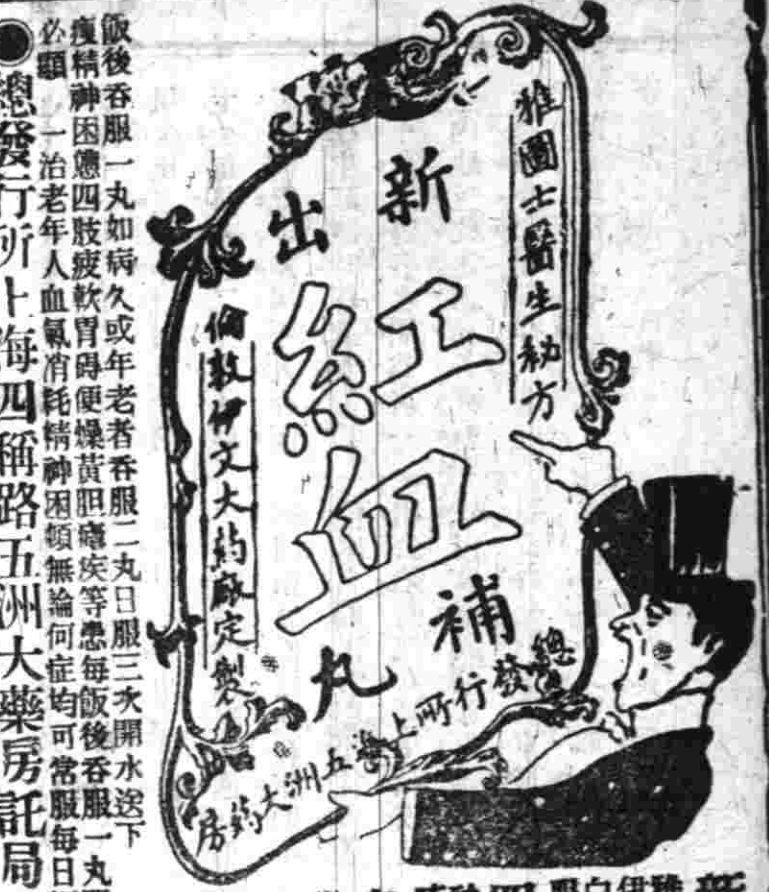 雅圖士醫生秘方
新出
紅血
補丸
倫敦伊文大葯廠定製
總發行所上海五洲大葯房
飯後吞服一丸如病久或年老者吞服二丸日服三次開水送下
瘦精神困憊四肢疲軟胃碍便燥黃胆瘧疾等患每飯後吞服一丸
必願 一治老年人血氣消耗精神困頓無論何症均可常服每日
●總發行所上海四稱路五洲大藥房託局